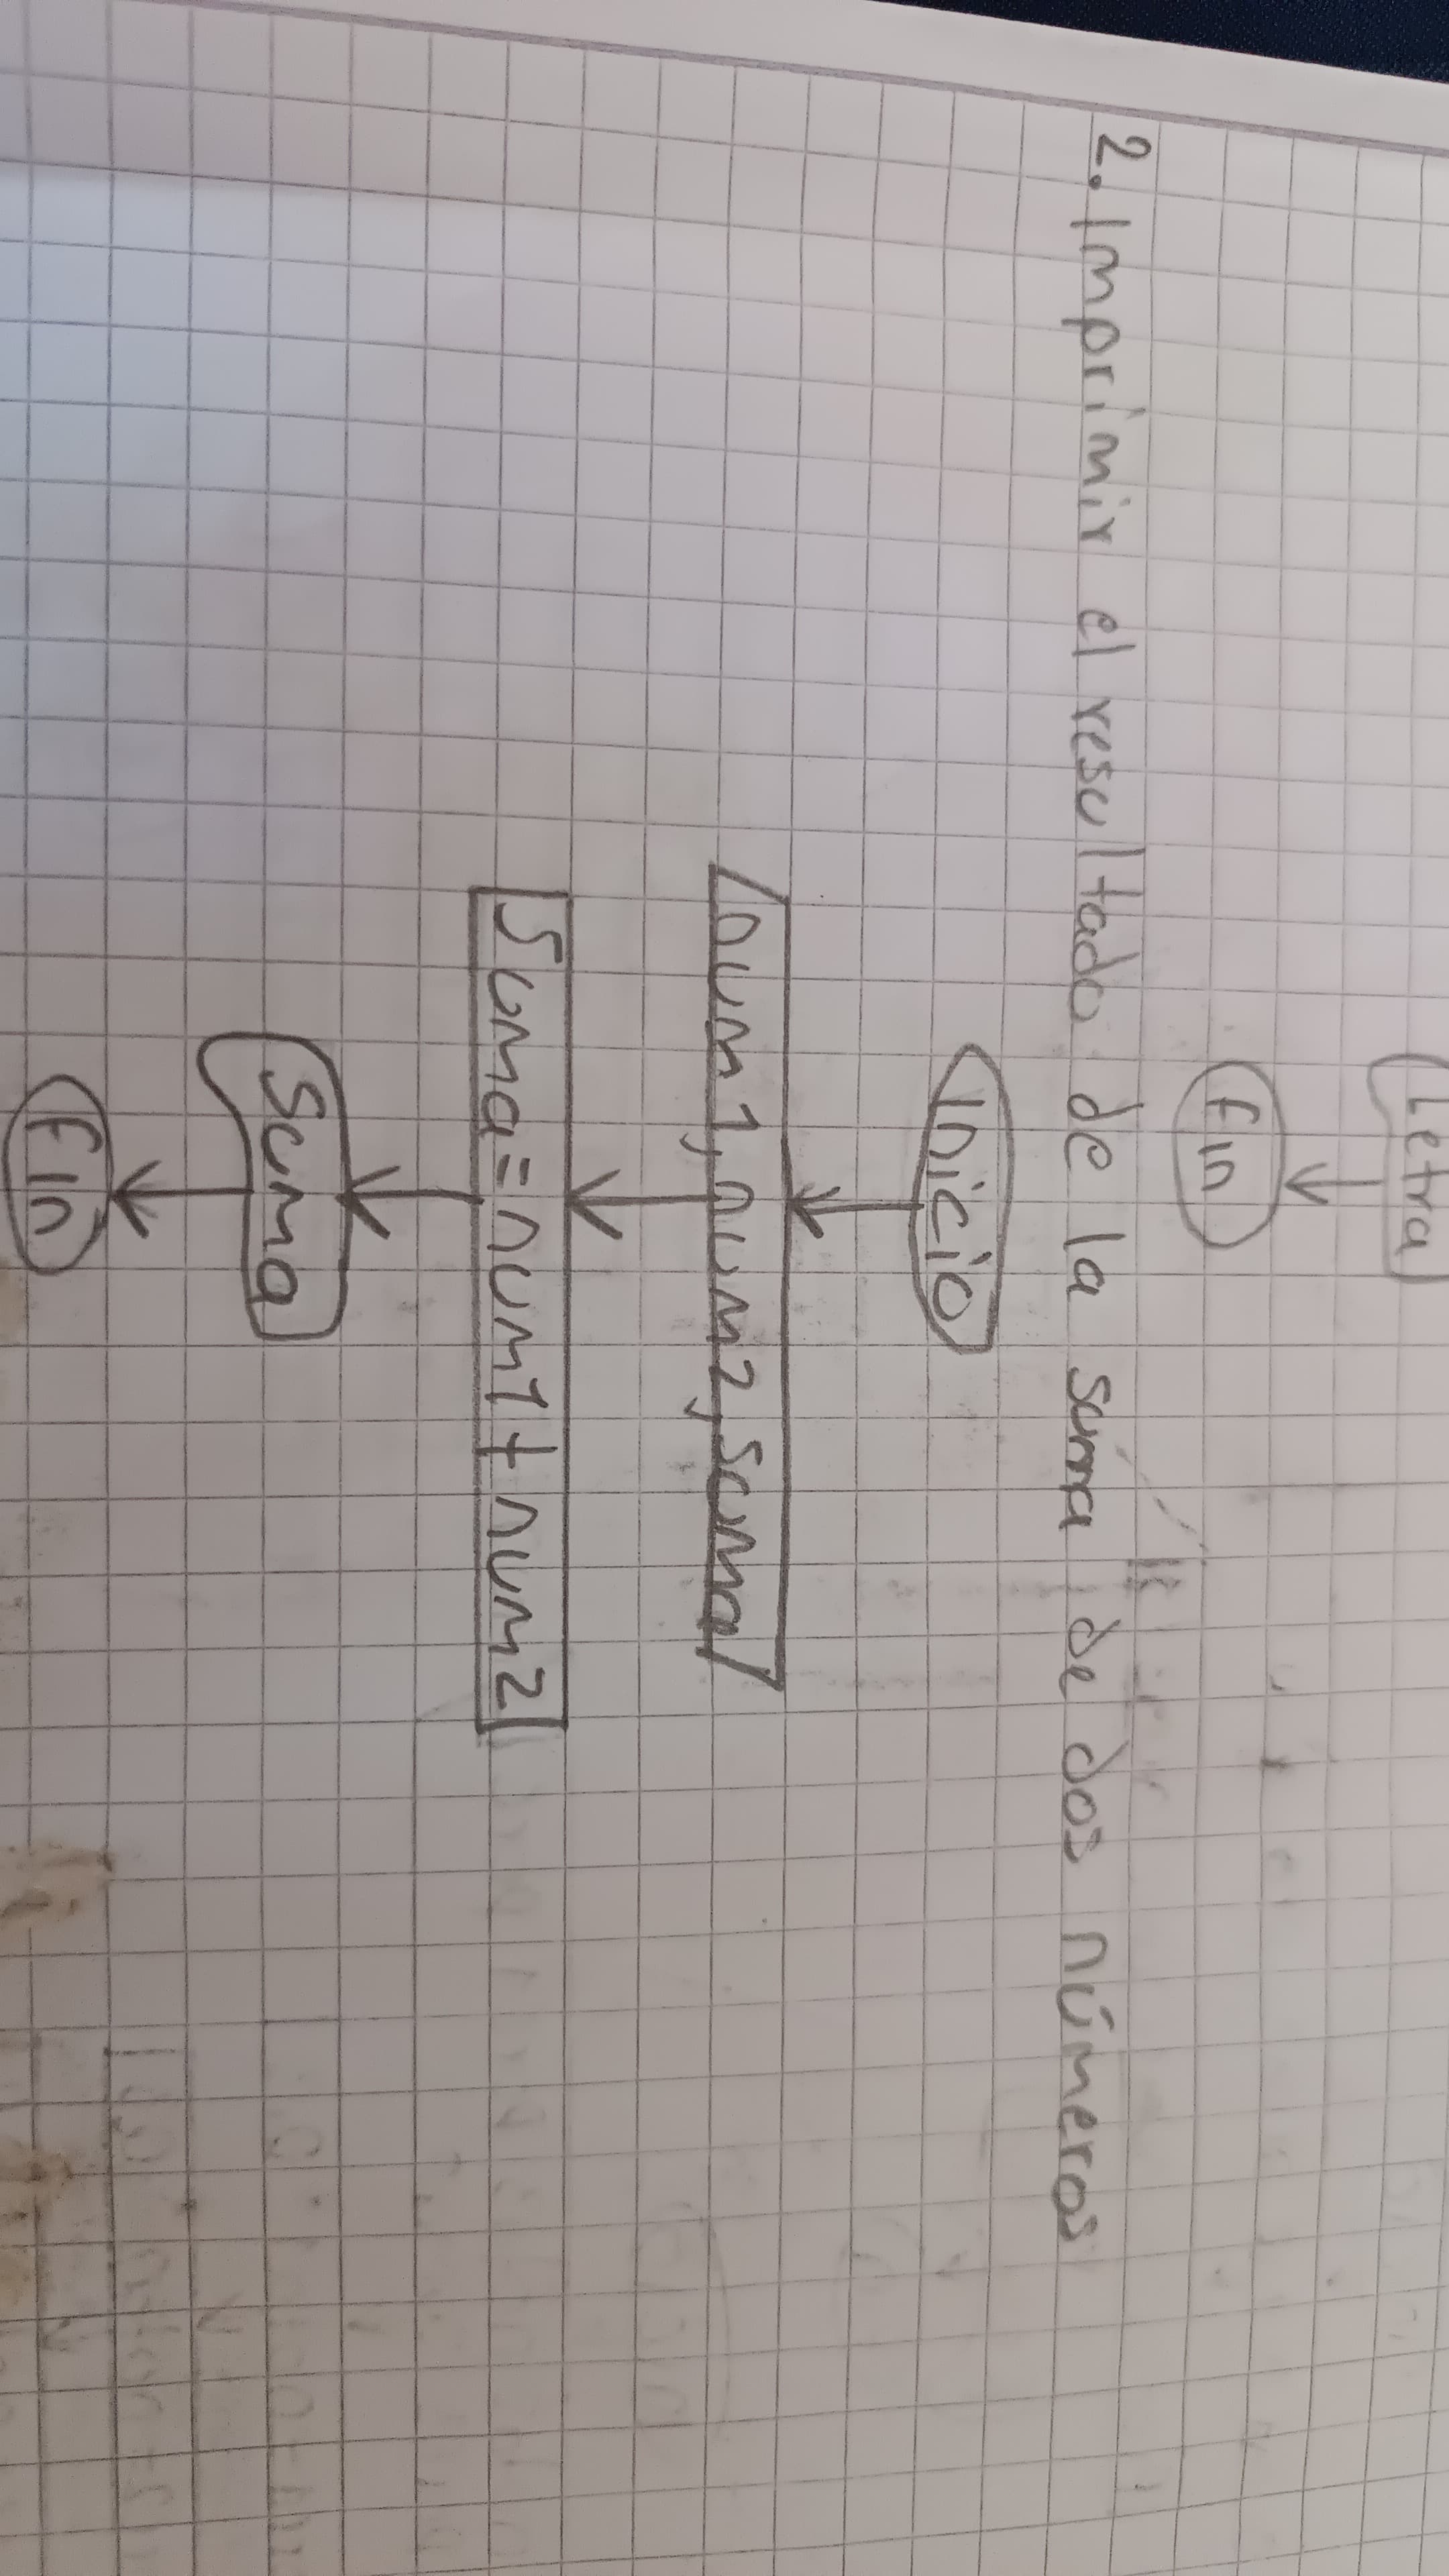 Letra
Fin
2. Imprimir el resultado de la suma de dos números
Inicio
num1, num2, suma
Suma=num1+num2
Suma
Fin